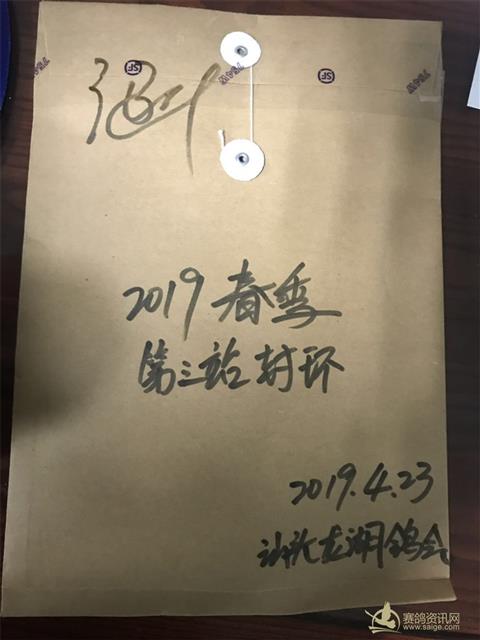 SF
SF
2019 春季
第三站封环
2019.4.23
汕头龙湖鸽会
赛鸽资讯网
www.saige.com